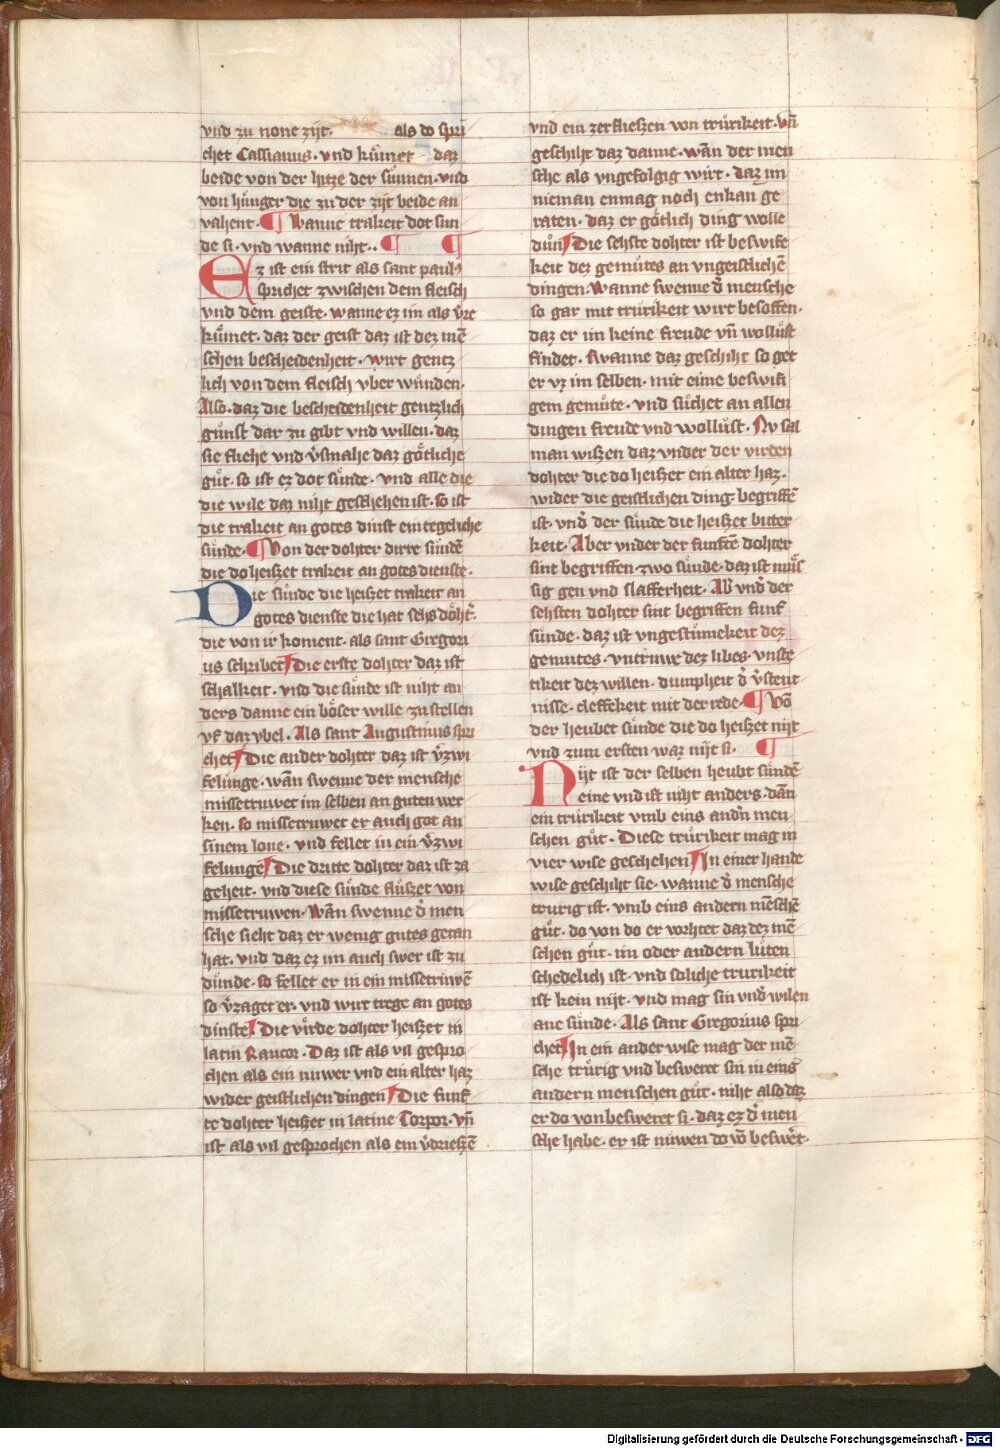 vnd zu none zijt. als do spri
chet Cassianus. vnd kuͤmet daz
beide von der hitze der suͤnnen. vnd
von huͤnger die zu der zijt beide an
vahent. ¶ Wanne trakeit dot sun
de si. vnd wanne niht.. ¶ ¶
Ez ist ein strit als sant paulꝰ
sprichet zwischen dem fleisch
vnd dem geiste. wanne ez im als v̓re
kuͤmet. daz der geist daz ist dez mē
schen bescheidenheit. wirt gentz
lich von dem fleisch vber wuͤnden.
Also. daz die bescheidenheit gentzlich
guͤnst dar zu gibt vnd willen. daz
sie fliehe vnd v̓smahe daz goͤtliche
guͤt. so ist ez dot suͤnde. vnd alle die
die wile daz niht geschehen ist. so ist
die trakeit an gotes dinst ein tegeliche
suͤnde. ¶ Von der dohter dirre suͤndē
die do heiszet trakeit an gotes dienste.
Die suͤnde die heiszet trakeit an
gotes dienste die hat sehs doͤht̓.
die von ir koment. als sant Gregori
us schribet ¶ Die erste dohter daz ist
schalkeit. vnd die suͤnde ist niht an
ders danne ein boͤser wille zu stellen
vf daz vbel. Als sant Augustinus spri
chet ¶ Die ander dohter daz ist v̓zwi
felunge. wān swenne der mensche
missetruwet im selben an guten wer
ken. so missetruwet er auch got an
sinem lone. vnd fellet in ein v̓zwi
felunge ¶ Die dritte dohter daz ist za
geheit. vnd diese suͤnde fluͤszet von
missetruwen. Wān swenne d̓ men
sche sieht daz er wenig gutes getan
hat. vnd daz ez im auch swer ist zu
duͤnde. so fellet er in ein missetruwē
so v̓zaget er. vnd wirt trege an gotes
dinste ¶ Die virde dohter heiszet in
latin Rancor. Daz ist als vil gespro
chen als ein nuwer vnd ein alter haz
wider geistlichen dingen ¶ Die funf
te dohter heiszet in latine Torpor. vn̄
ist als vil gesprochen als ein v̓drieszē
vnd ein zerflieszen von truͤrikeit. vn̄
geschiht daz danne. wān der men
sche als vngefolgig wirt. daz im
nieman enmag noch enkan ge
raten. daz er goͤtlich ding wolle
duͤn ¶ Die sehste dohter ist beswife
keit dez gemuͤtes an vngeistlichē
dingen. Wanne swenne d̓ mensche
so gar mit truͤrikeit wirt besoffen.
daz er im keine freude vn̄ wolluͤst
findet. Wanne daz geschiht so get
er vz im selben. mit eime beswifi
gem gemuͤte. vnd suͤchet an allen
dingen freude vnd wolluͤst. Nv sal
man wiszen daz vnder der virden
dohter die do heiszet ein alter haz.
wider die geistlichen ding begriffē
ist. vnd̓ der suͤnde die heiszet bitter
keit. Aber vnder der funftē dohter
sint begriffen zwo suͤnde. daz ist muͤs
sig gen vnd slafferheit. Ab̓ vnd̓ der
sehsten dohter sint begriffen funf
suͤnde. daz ist vngestuͤmekeit dez
gemutes. vntruwe dez libes. vnste
tikeit dez willen. dumpheit d̓ v̓stent
nisse. cleffekeit mit der rede. ¶ Vō
der heubet suͤnde die do heiszet nijt
vnd zum ersten waz nijt si. ¶
Nijt ist der selben heubt suͤndē
eine vnd ist niht anders. dān
ein truͤrikeit vmb eins andn̓ men
schen guͤt. Diese truͤrikeit mag in
vier wise geschehen ¶ In einer hande
wise geschiht sie. wanne d̓ mensche
trurig ist. vmb eins andern mēschē
guͤt. do von do er vorhtet daz dez mē
schen guͤt. im oder andern luͤten
schedelich ist. vnd soliche trurikeit
ist kein nijt. vnd mag sin vnd̓ wilen
ane suͤnde. Als sant Gregorius spri
chet ¶ In ein ander wise mag der mē
sche truͤrig vnd besweret sin in eins
andern menschen guͤt. niht also daz
er do von besweret si. daz ez d̓ men
sche habe. er ist nuwen do vō beswe̓t.
Digitalisierung gefördert durch die Deutsche Forschungsgemeinschaft - DFG